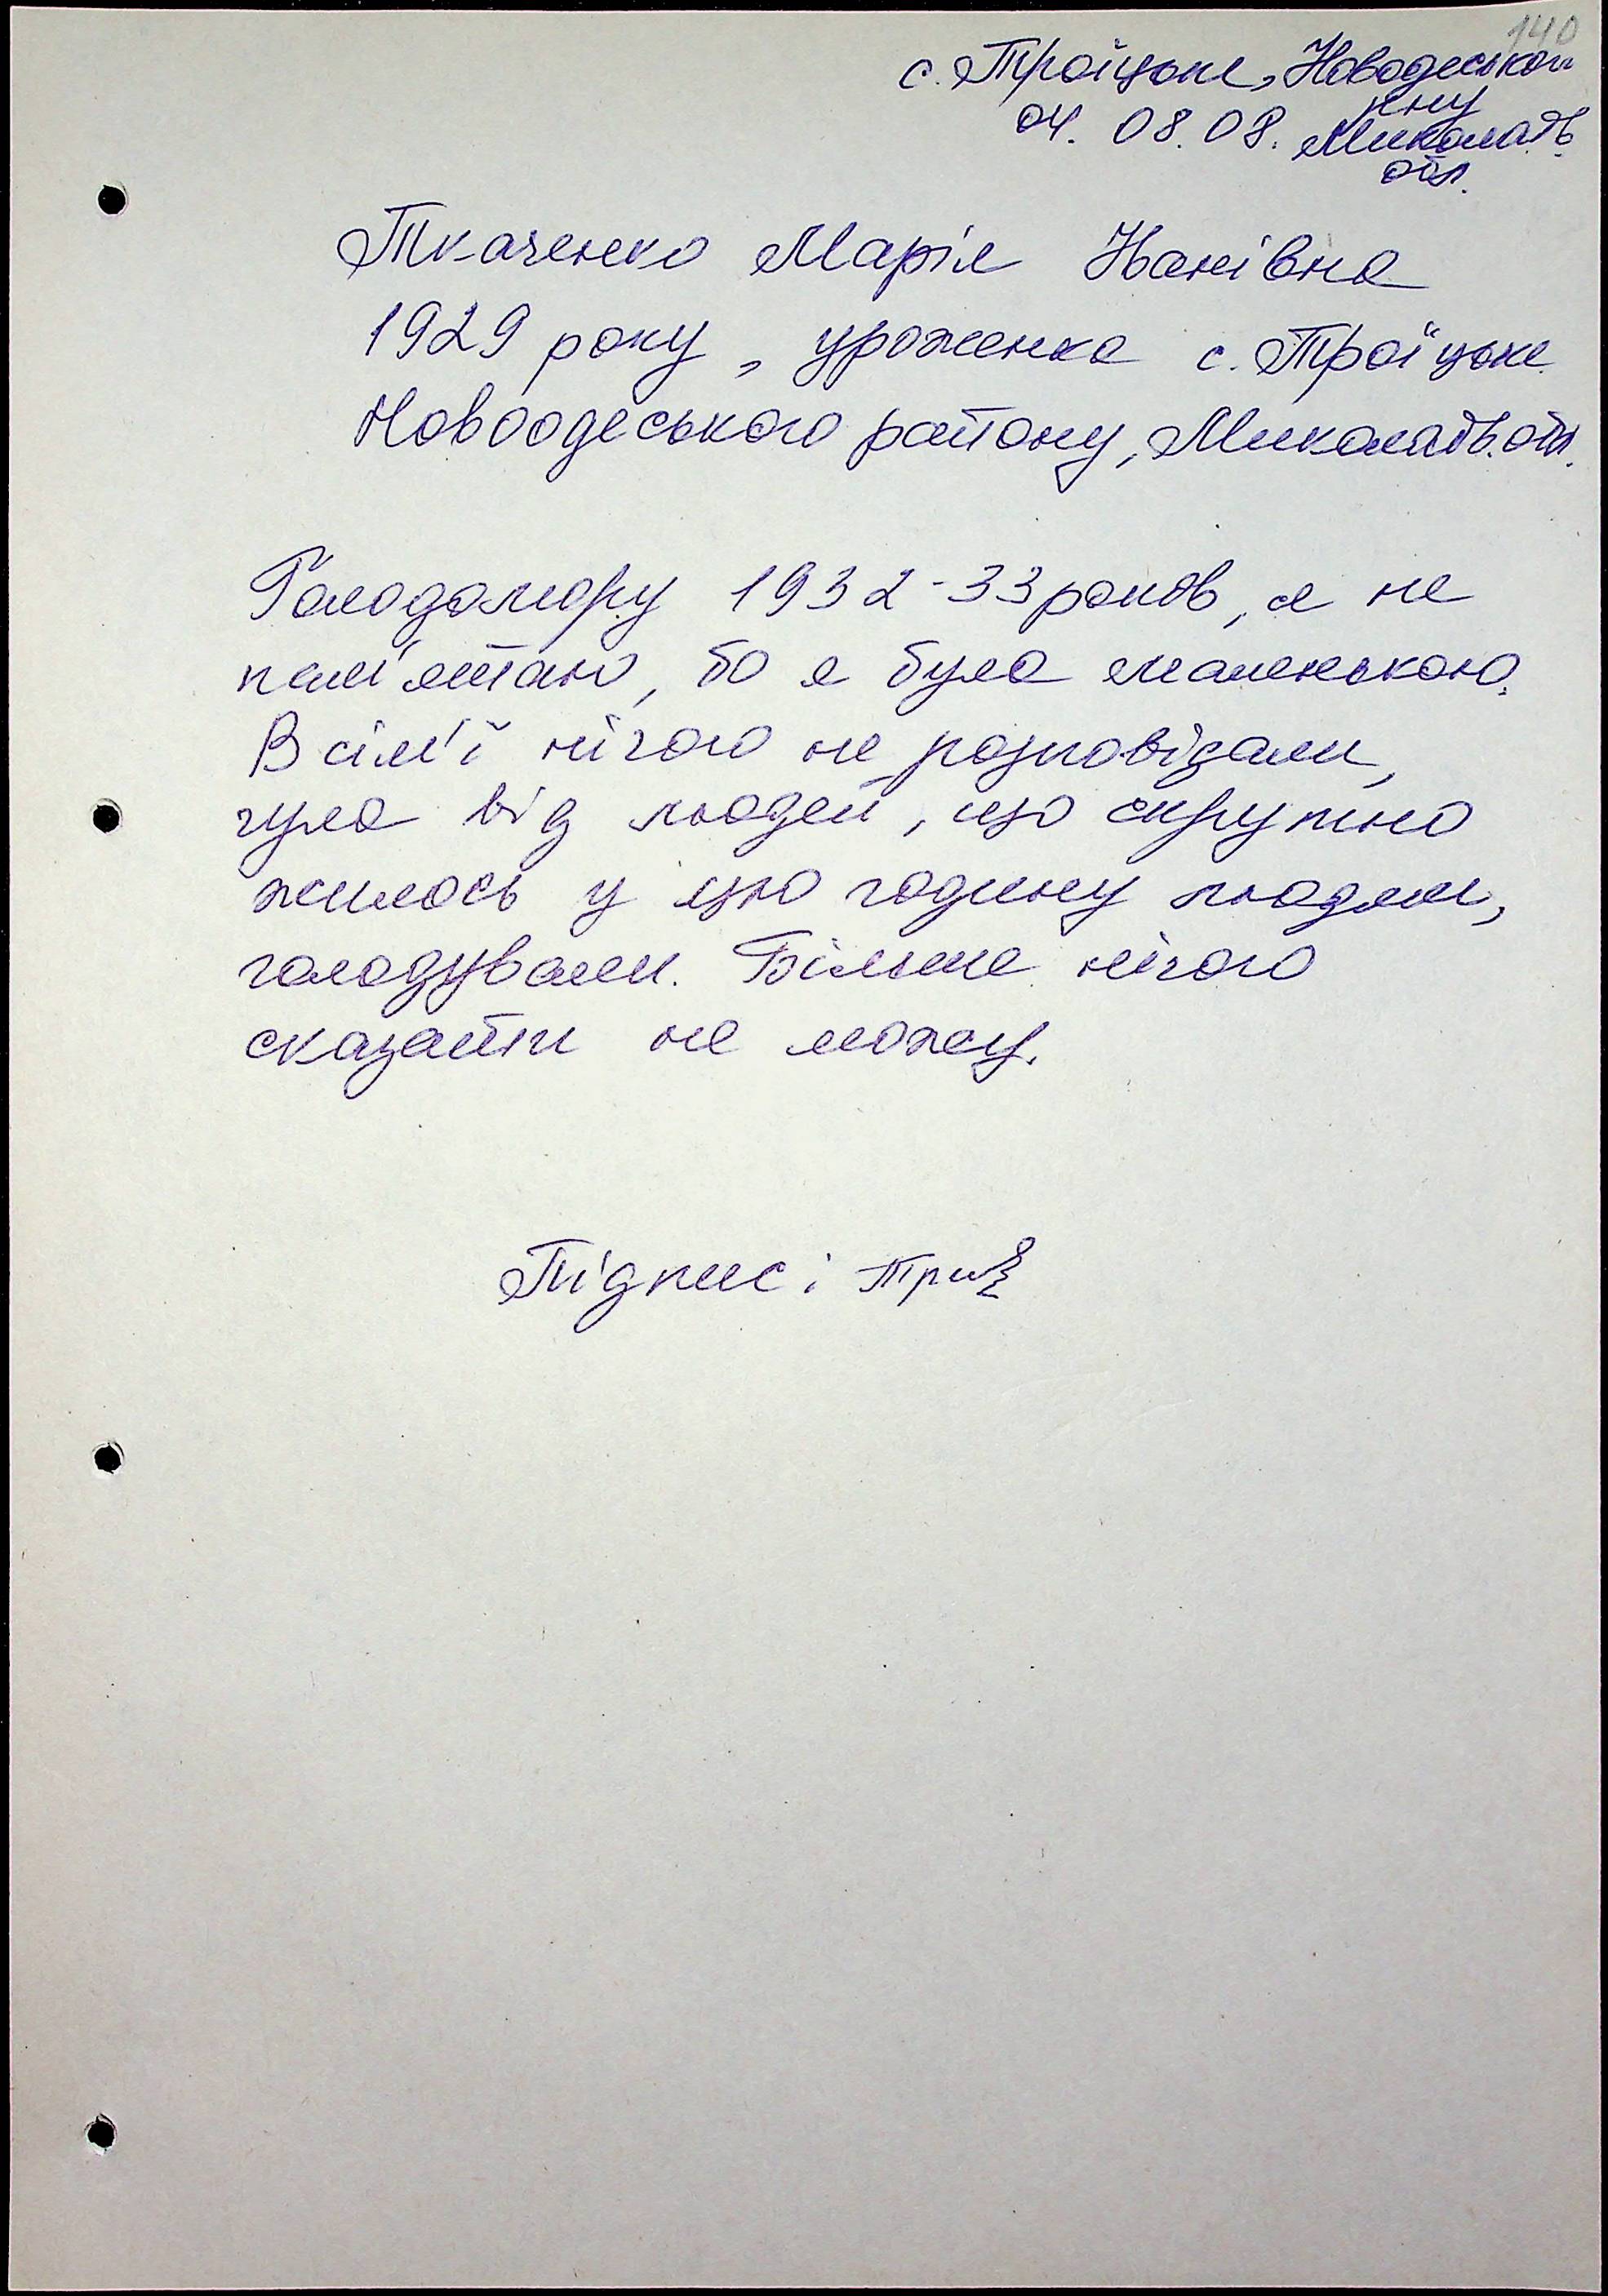 140
с. Троїцьке, Новодеського
р-ну
04. 08. 08. Миколаїв.
обл.
Ткаченко Марія Іванівна
1929 року, уроженка с. Троїцьке
Новоодеського району, Миколаїв. обл.
Голодомору 1932-33 років, я не
пам'ятаю, бо я була маленькою.
В сім'ї нічого не розповідали,
чула від людей, що скрутно
жилось у цю годину людям,
голодували. Більше нічого
сказати не можу.
Підпис: